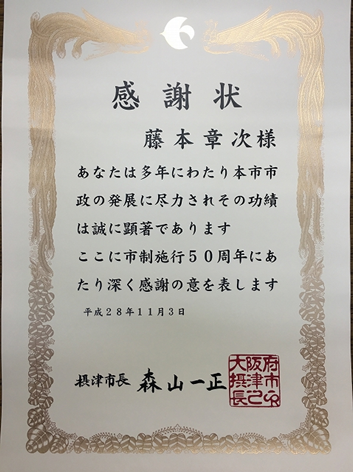 感謝状
藤本章次様
あなたは多年にわたり本市市
政の発展に尽力されその功績
は誠に顕著であります
ここに市制施行50周年にあ
たり深く感謝の意を表します
平成28年11月3日
摂津市長 森山一正
大阪府
摂津市
長之印